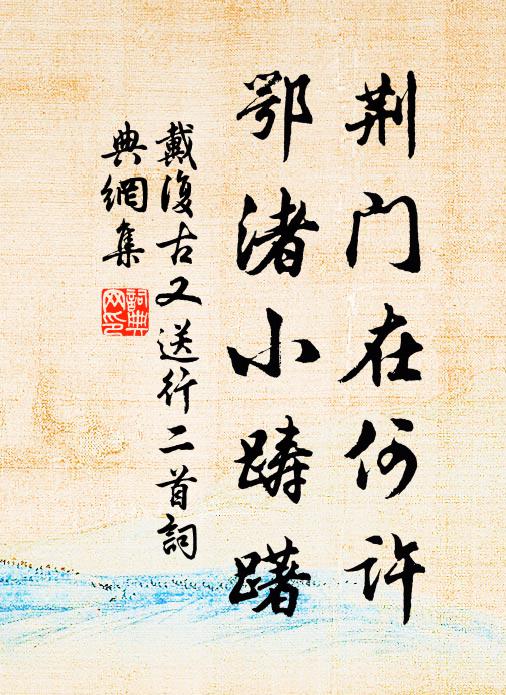 荆门在何许
鄂渚小踌躇
戴復古又送行二首詞
典網集
詞典網印